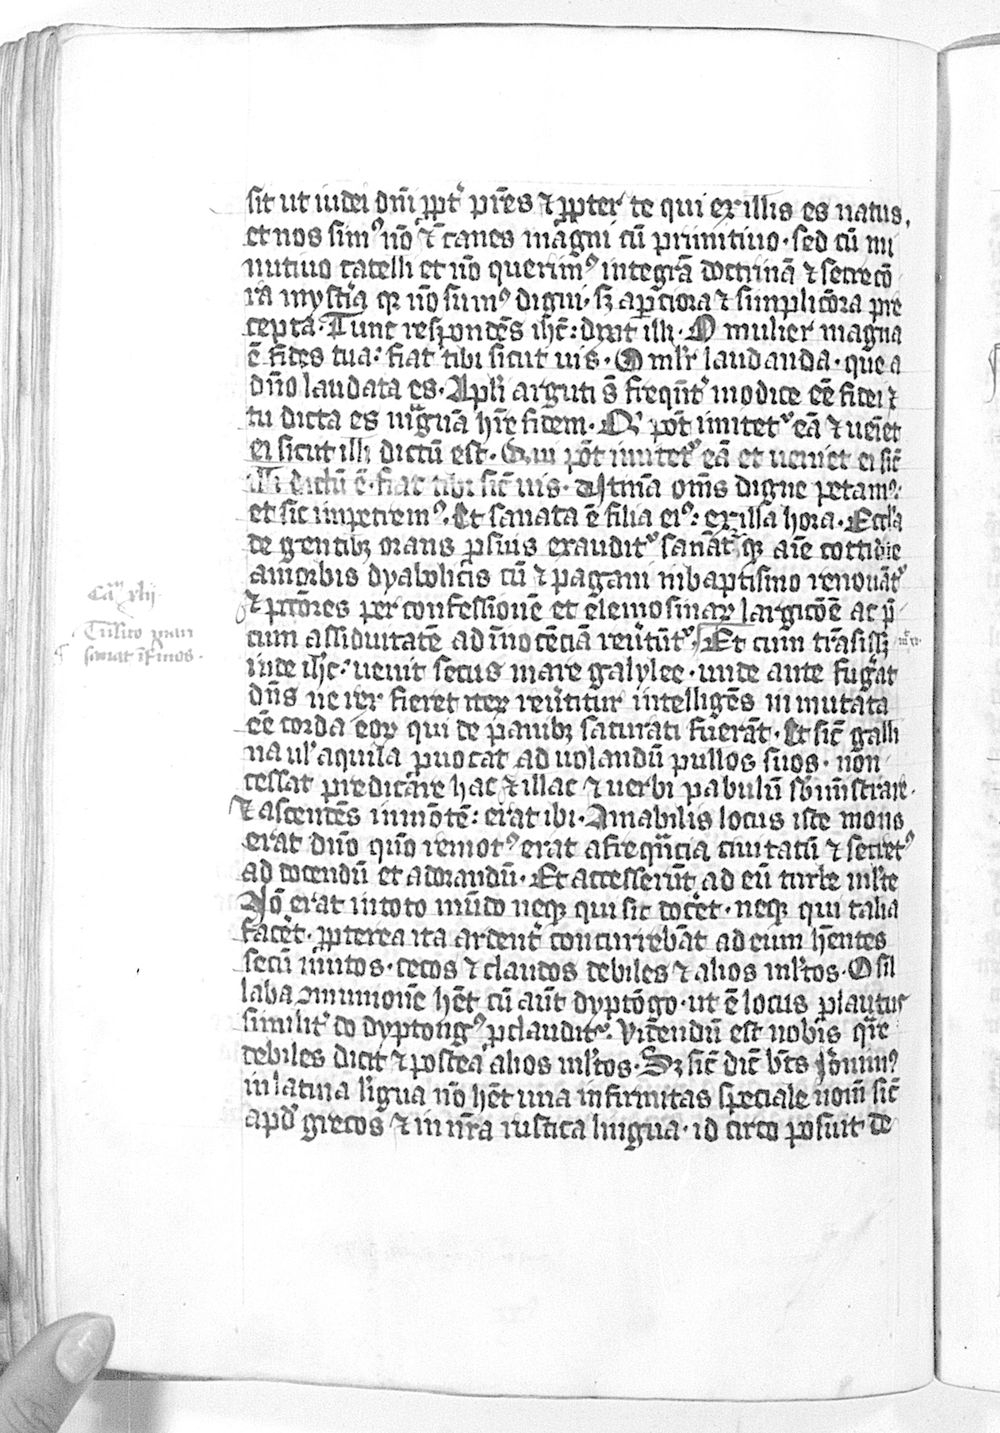 sit ut iudei dn̄i ꝓpt̾ pr̄es ⁊ ꝓpter te qui ex illis es natus.
et nos simꝰ nō t̄ canes magni cū primitiuo · sed cū mi
nutiuo catelli et nō querimꝰ integrā doctrinā ⁊ secrecō
ra mystia qꝛ nō sumꝰ digni · sꝫ aꝑciora ⁊ simplicōra pre
cepta · Tunc respondēs ih̄c : dixit illi · O mulier magna
ē fides tua : fiat tibi sicut uis · O mlr̄ laudanda · que a
dn̄o laudata es · Apl̄i arguti s̄ freqn̄t̾ modice eē fidei ⁊
tu dicta es magnā hr̄e fidem · Qͥ pōt imitetᷣ eā ⁊ ueīet
ei sicut illi dictū est · Qui pōt imitetᷣ eā et ueniet ei sic̄
illi dictū ē · fiat tibi sic̄ uis · Vtinā om̄s digne petamꝰ ·
et sic impetremꝰ · Et sanata ē filia eiꝰ : ex illa hora · Eccl̄a
de gentibꝫ orans ꝑ suis exauditᷣ sanāt᷑ qꝛ aīe cottidie
a morbis dyabolicis cū ⁊ pagani in baptismo renouāt᷑
⁊ pctōres per confessionē et elemosinaꝝ largicōē ac p̄
cum assiduitatē ad īnocēciā reu̾tūt᷑ · Et cum trāsissꝫ
inde ih̄c : uenit secus mare galylee · unde ante fug̾at
dn̄s ne rex fieret iteꝝ reu̾titur intelligēs inmutata
eē corda eoꝝ qui de panibꝫ saturati fuerāt · Et sic̄ galli
na ul̾ aquila ꝓuocat ad uolandū pullos suos · non
cessat predicare hac ⁊ illac ⁊ uerbi pabulū sb̾mīstrare ·
⁊ ascendēs in mōtē : erat ibi · Amabilis locus iste mons
erat dn̄o qn̄o remotꝰ erat a freqn̄cia ciuitatū ⁊ secretꝰ
ad docendū et adorandū · Et accesserūt ad eū turbe ml̄te
Nō erat in toto mūdo neqꝫ qui sic doc̾et · neqꝫ qui talia
fac̾et · ꝓpterea ita ardent̾ concurrebāt ad eum hn̄tes
secū mutos · cecos ⁊ claudos debiles ⁊ alios ml̄tos · O sil
laba ꝯmunionē hēt cū aūt dyptōgo · ut ē locus plautus
similit̾ do dyptongꝰ ꝑclauditᷣ · Vidēdū est nobis qr̄e
debiles dicit ⁊ postea alios ml̄tos · Sꝫ sic̄ dic̄ bt̄s Iōnimꝰ
in latina līgua nō hēt una infirmitas speciale nom̄ sic̄
apd̾ grecos ⁊ in nr̄a rustica lingua · idcirco posuit de
Caᵐ xlij
sanat īf̄mos ·